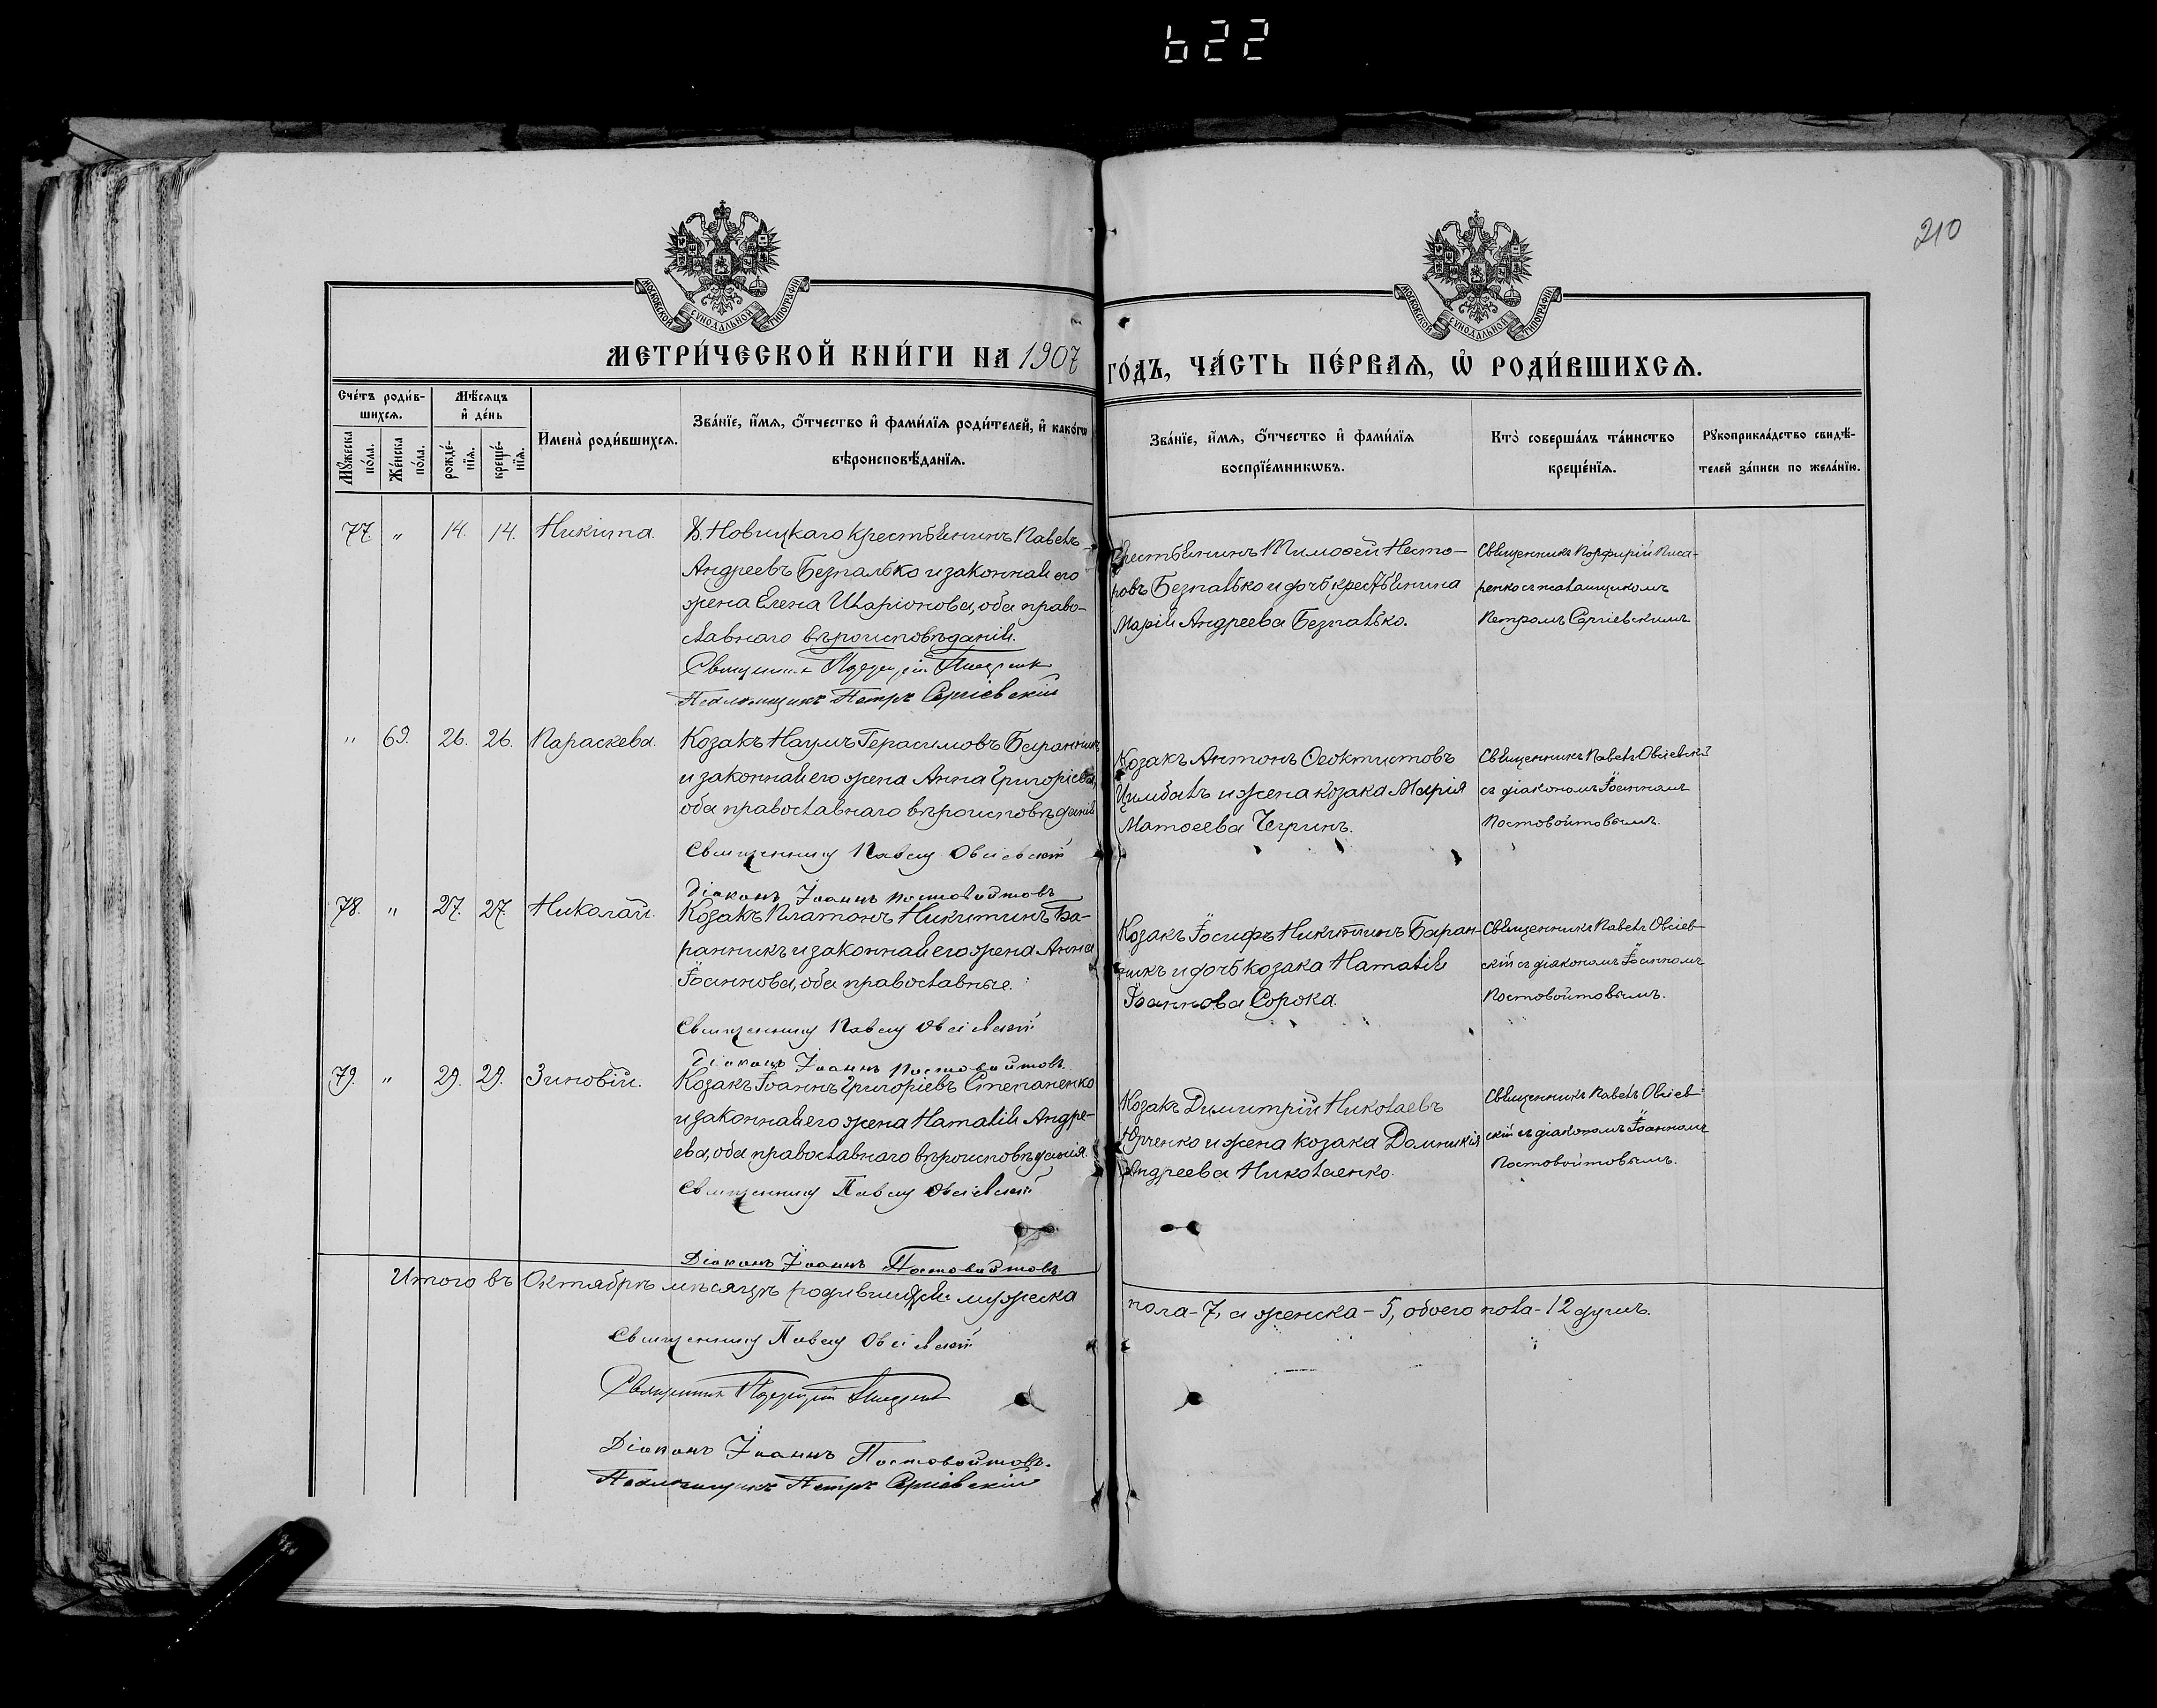 622
210
МОСКОВСКОЙ СѴНОДАЛЬНОЙ ТИПОГРАФІИ
МОСКОВСКОЙ СѴНОДАЛЬНОЙ ТИПОГРАФІИ
МЕТРИ́ЧЕСКОЙ КНИ́ГИ НА 1907
ГО́ДЪ, ЧА́СТЬ ПЕ́РВАѦ, Ѽ РОДИ́ВШИХСѦ.
Сче́тъ роди́в-
шихсѧ.
Мꙋ́жеска по́ла.
Же́нска по́ла.
Мѣ́сѧцъ
и҆ де́нь
рожде́-
нїѧ.
креще́-
нїѧ.
И҆мена̀ роди́вшихсѧ.
Зва́нїе, и҆́мѧ, ѻ҆́тчество и҆ фами́лїѧ роди́телей, и҆ како́гѡ
вѣроисповѣ́данїѧ.
Зва́нїе, и҆́мѧ, ѻ҆́тчество и҆ фами́лїѧ
воспрїе́мникѡвъ.
Кто̀ соверша́лъ та́инство
креще́нїѧ.
Рꙋкоприкла́дство свидѣ́-
телей за́писи по жела́нїю.
77. " 14. 14. Никита.
Д. Новицкаго крестьянинъ Павелъ
Андреевъ Безпалько и законная его
жена Елена Иларіонова, оба право-
славнаго вѣроисповѣданія.
Священникъ Порфирій Писаренко
Псаломщикъ Петръ Сергіевскій
Крестьянинъ Тимоѳей Несто-
ровъ Безпалько и дочь крестьянина
Марія Андреева Безпалько.
Священникъ Порфирій Писа-
ренко съ псаломщикомъ
Петромъ Сергіевскимъ
" 69. 26. 26. Параскева.
Козакъ Наумъ Герасимовъ Баранникъ
и законная его жена Анна Григоріева,
оба православнаго вѣроисповѣданія
Священникъ Павелъ Овсіевскій
Діаконъ Іоаннъ Постовойтовъ
Козакъ Антонъ Ѳеоктистовъ
Цимбалъ и жена козака Марія
Матѳеева Чегринъ.
Священникъ Павелъ Овсіевскій
съ діакономъ Іоанномъ
Постовойтовымъ.
78. " 27. 27. Николай.
Козакъ Платонъ Никитинъ Ба-
ранникъ и законная его жена Анна
Іоаннова, оба православные.
Священникъ Павелъ Овсіевскій
Діаконъ Іоаннъ Постовойтовъ.
Козакъ Іосифъ Никитинъ Баран-
никъ и дочь козака Наталія
Іоаннова Сорока.
Священникъ Павелъ Овсіев-
скій съ діакономъ Іоанномъ
Постовойтовымъ.
79. " 29. 29. Зиновій.
Козакъ Іоаннъ Григоріевъ Степаненко
и законная его жена Наталія Андре-
ева, оба православнаго вѣроисповѣданія.
Священникъ Павелъ Овсіевскій
Діаконъ Іоаннъ Постовойтовъ
Козакъ Димитрій Николаевъ
Юрченко и жена козака Домникія
Андреева Николаенко.
Священникъ Павелъ Овсіев-
скій съ діакономъ Іоанномъ
Постовойтовымъ.
Итого въ Октябрѣ мѣсяцѣ родившихся мужеска
пола - 7, а женска - 5, обоего пола - 12 душъ.
Священникъ Павелъ Овсіевскій
Священникъ Порфирій Писаренко
Діаконъ Іоаннъ Постовойтовъ.
Псаломщикъ Петръ Сергіевскій